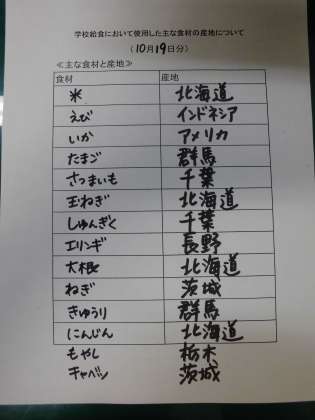 学校給食において使用した主な食材の産地について
(10月19日分)
≪主な食材と産地≫
食材 産地
米 北海道
えび インドネシア
いか アメリカ
たまご 群馬
さつまいも 千葉
玉ねぎ 北海道
しゅんぎく 千葉
エリンギ 長野
大根 北海道
ねぎ 茨城
きゅうり 群馬
にんじん 北海道
もやし 栃木
キャベツ 茨城